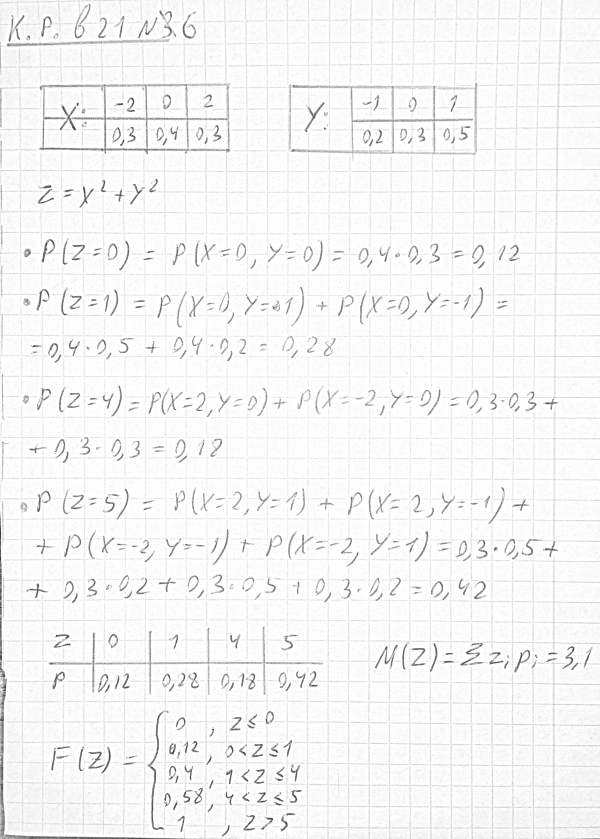 К. Р. В 21 №3.6
X: -2 0 2 Y: -1 0 1
0,3 0,4 0,3 0,2 0,3 0,5
Z = X² + Y²
• P(Z=0) = P(X=0, Y=0) = 0,4·0,3 = 0,12
• P(Z=1) = P(X=0, Y=1) + P(X=0, Y=-1) =
= 0,4·0,5 + 0,4·0,2 = 0,28
• P(Z=4) = P(X=2, Y=0) + P(X=-2, Y=0) = 0,3·0,3 +
+ 0,3·0,3 = 0,18
• P(Z=5) = P(X=2, Y=1) + P(X=2, Y=-1) +
+ P(X=-2, Y=-1) + P(X=-2, Y=1) = 0,3·0,5 +
+ 0,3·0,2 + 0,3·0,5 + 0,3·0,2 = 0,42
Z 0 1 4 5
P 0,12 0,28 0,18 0,42
M(Z) = Σ zᵢ pᵢ = 3,1
F(Z) =
0, z ≤ 0
0,12, 0 < z ≤ 1
0,4, 1 < z ≤ 4
0,58, 4 < z ≤ 5
1, z > 5